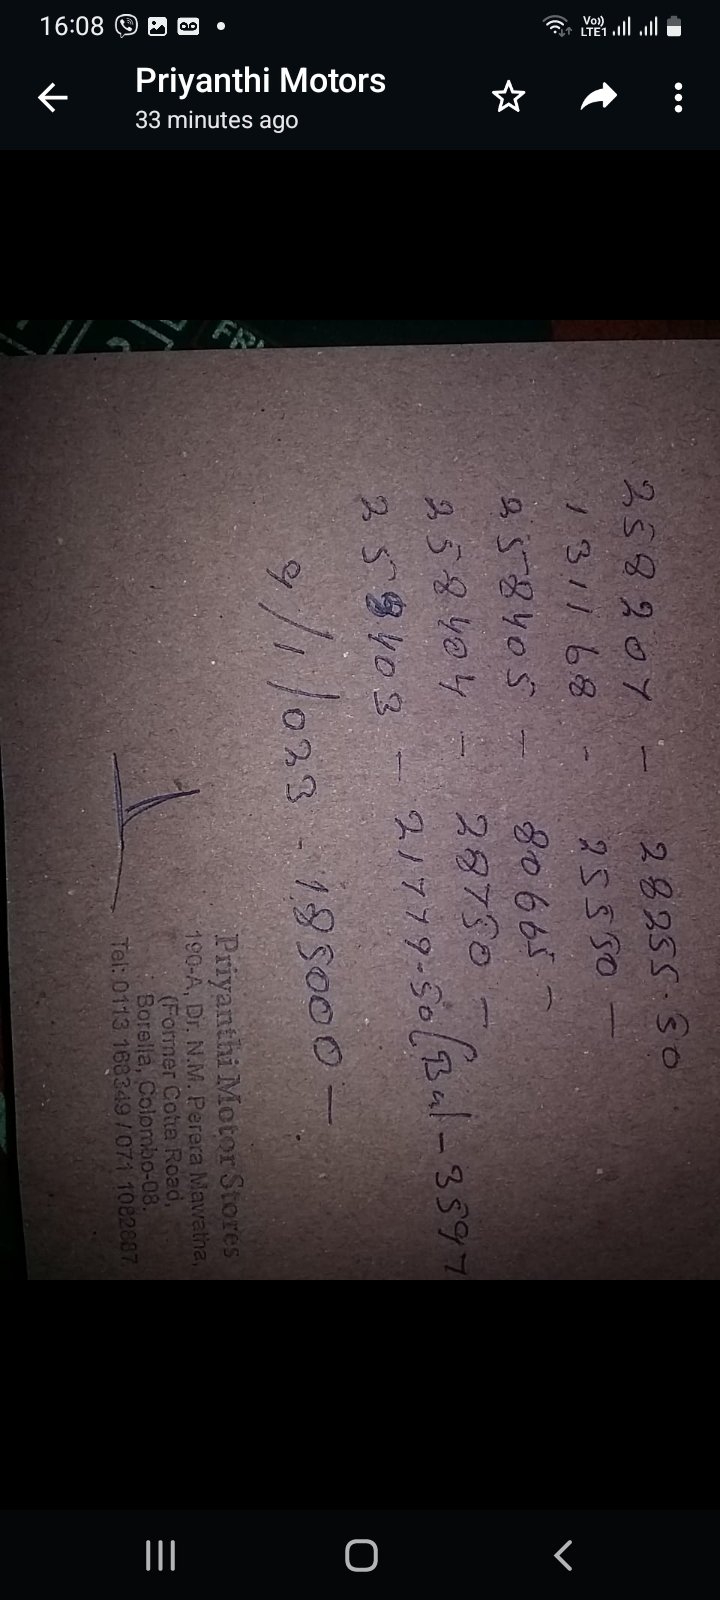 16:08
Vo))
LTE1
Priyanthi Motors
33 minutes ago
258207 - 28255.50
131168 - 25550 -
258405 - 80665 -
258404 - 28750 -
258403 - 21779-50 (Bal - 3597
9/1/023 - 185000 -
Priyanthi Motor Stores
190-A, Dr. N.M. Perera Mawatha,
(Former Cotta Road,
Borella, Colombo-08.
Tel: 0113 168349 / 071 1082887